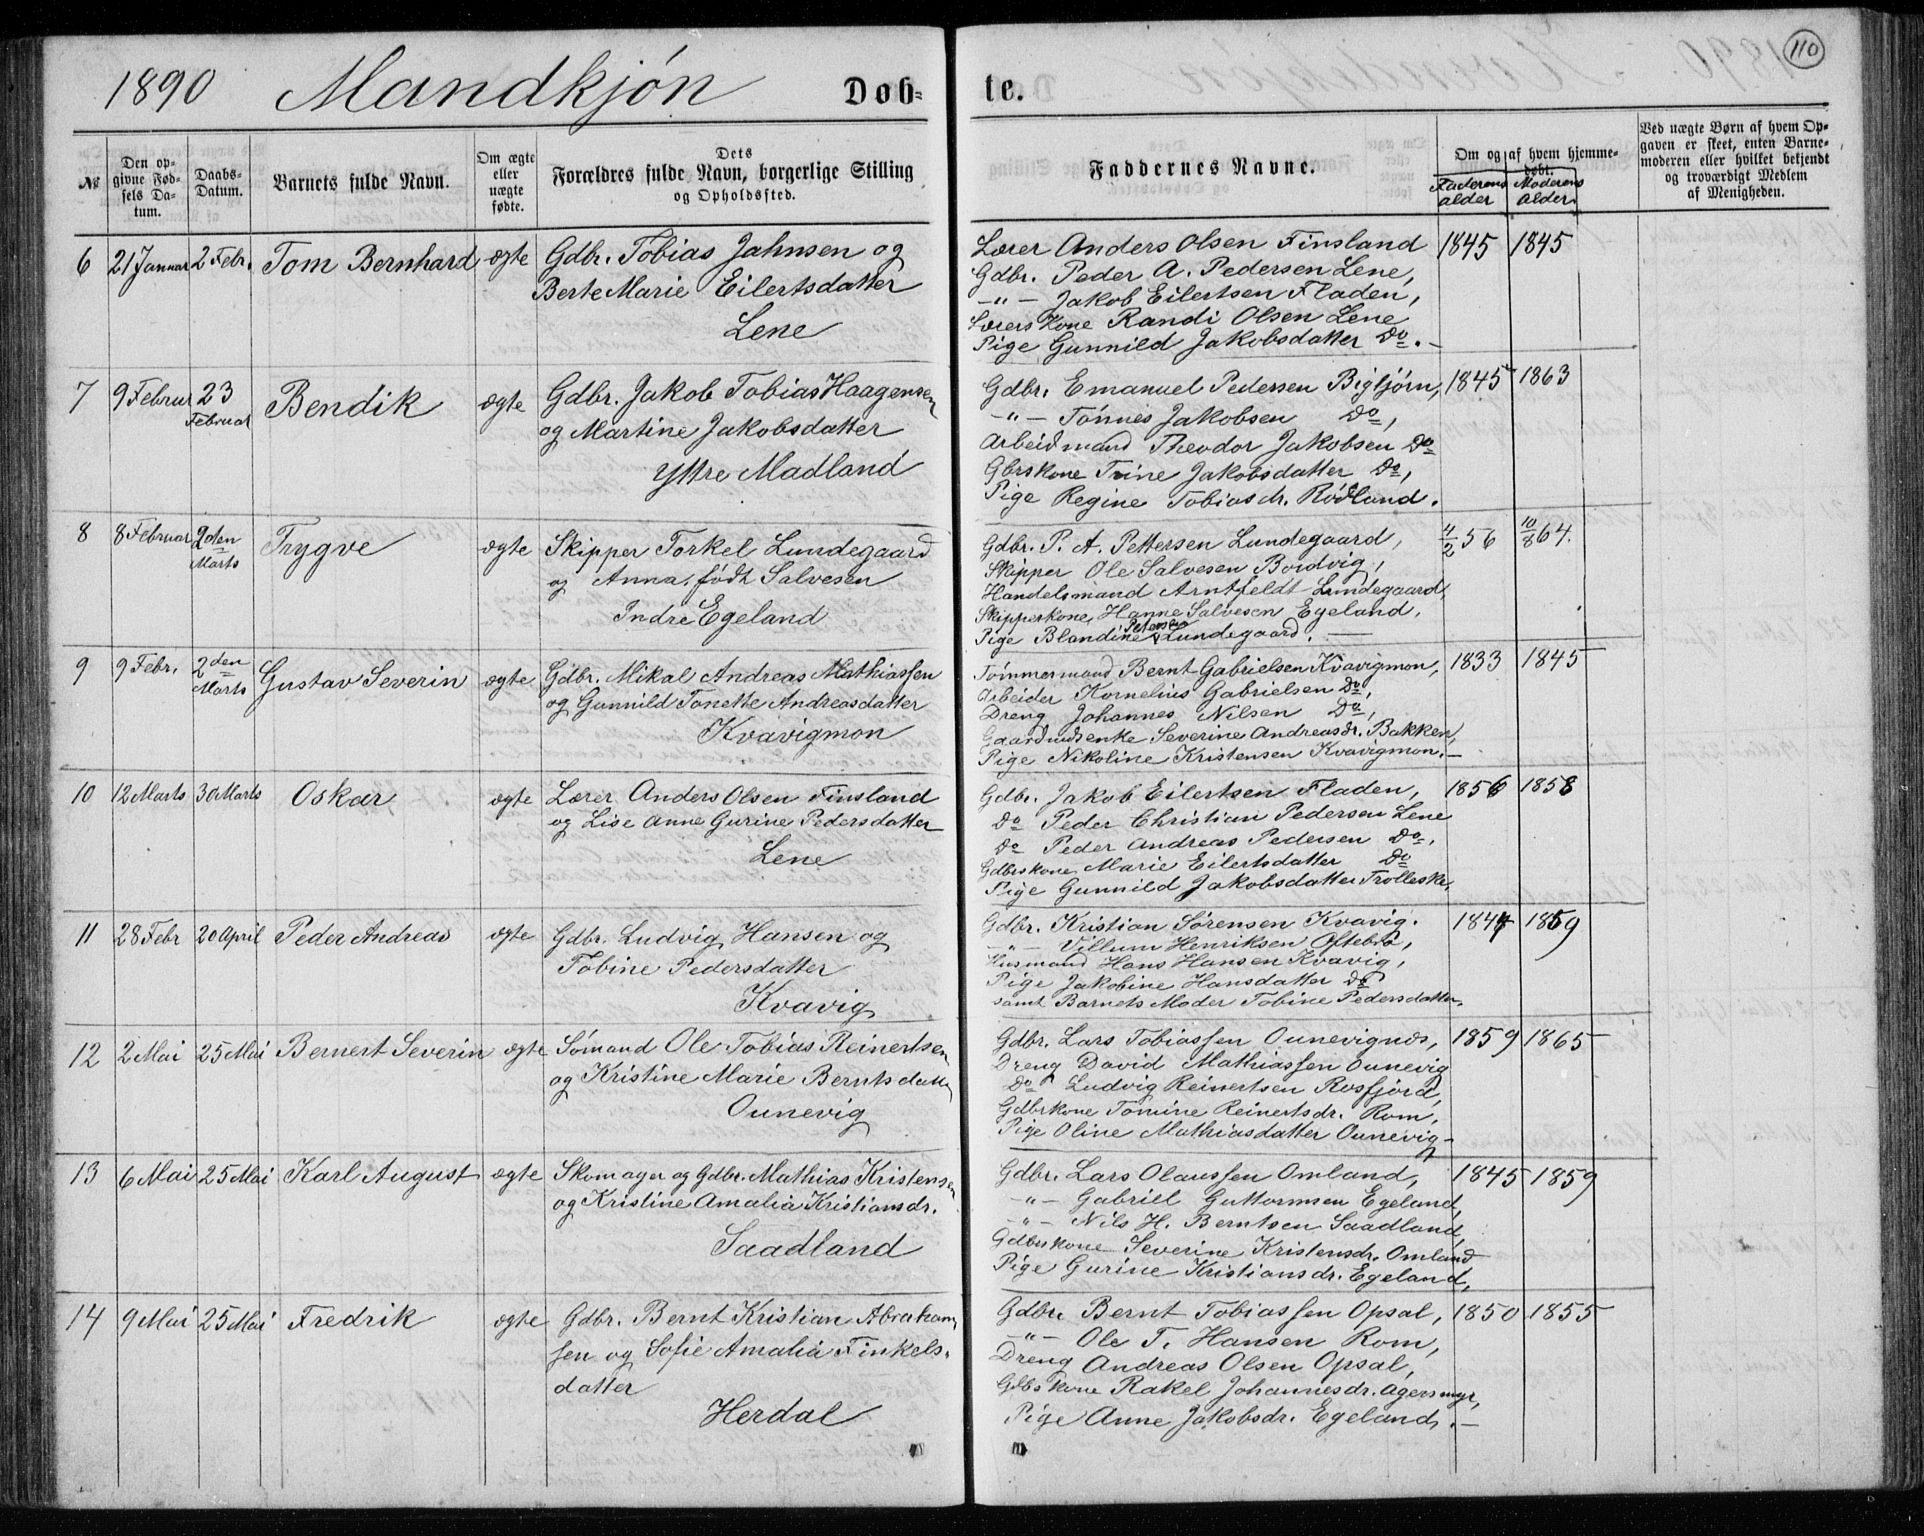 1890 Mandkjön Døb-
te.
110
№
Den op-
givne Fød-
sels Da-
tum.
Daabs-
Datum.
Barnets fulde Navn.
Om ægte
eller
uægte
fødte.
Dets
Forældres fulde Navn, borgerlige Stilling
og Opholdssted.
Faddernes Navne.
Om og af hvem hjemme-
døbt.
Faderens
alder
Moderens
alder.
Ved uægte Børn af hvem Op-
gaven er skeet, enten Barne-
moderen eller hvilket bekjendt
og troværdigt Medlem
af Menigheden.
6 21 Januar 2 Febr. Tom Bernhard ægte
Gdbr. Tobias Jahnsen og
Berte Marie Eilertsdatter
Lene
Lærer Anders Olsen Finsland 1845 1845
Gdbr. Peder A. Pedersen Lene,
-"- Jakob Eilertsen Fladen,
Lærerskone Randi Olsen Lene
Pige Gunnild Jakobsdatter Do.-
7 9 Februar 23
Februar
Bendik ægte
Gdbr. Jakob Tobias Haagensen
og Martine Jakobsdatter
Yttre Madland
Gdbr. Emanuel Pedersen Bigtjörn, 1845 1863
-"- Tönnes Jakobsen Do,
Arbeidsmand Theodor Jakobsen Do
Gbrskone Trine Jakobsdatter Do,
Pige Regine Tobiasdr. Rödland.
8 8 Februar 2den
Marts
Trygve ægte
Skipper Torkel Lundegaard
og Anna, født Salvesen
Indre Egeland
Gdbr. P. A. Pettersen Lundegaard, 4/2 56 10/8 64.
Skipper Ole Salvesen Boidvig,
Handelsmand Arntfeldt Lundegaard,
Skipperskone, Hanne Salvesen Egeland,
Petersen
Pige Blandine Lundegaard. —
9 9 Febr. 2den
Marts
Gustav Severin ægte
Gdbr. Mikal Andreas Mathiassen
og Gunnild Tonette Andreasdatter
Kvavigmon
Tömmermand Bernt Gabrielsen Kvavigmon, 1833 1845
Arbeider Kornelius Gabrielsen Do,
Dreng Johannes Nilsen Do,
Gaardmdsenke Severine Andreasdr. Bakken,
Pige Nikoline Kristensen Kvavigmon.-
10 12 Marts 30 Marts Oskar ægte
Lærer Anders Olsen Finsland
og Lise Anne Gurine Pedersdatter
Lene
Gdbr. Jakob Eilertsen Fladen, 1856 1858
Do Peder Christian Pedersen Lene
Do Peder Andreas Pedersen Do.
Gdbrskone Marie Eilertsdatter Do
Pige Gunnild Jakobsdatter Trolleske,
11 28 Febr 20 April Peder Andreas ægte
Gdbr. Ludvig Hansen og
Tobine Pedersdatter
Kvavig
Gdbr. Kristian Sörensen Kvavig. 1847 1859
-"- Villum Henriksen Oftebro,
Husmand Hans Hansen Kvavig,
Pige Jakobine Hansdatter Do
samt Barnets Moder Tobine Pedersdatter.
12 2 Mai 25 Mai Bernert Severin ægte
Sömand Ole Tobias Reinertsen
og Kristine Marie Berntsdatt
Ounevig
Gdbr. Lars Tobiassen Ounevignds, 1859 1865
Dreng David Mathiassen Ounevig
Do Ludvig Reinertsen Rosfjord,
Gdbrkone Tomine Reinertsdr. Rom,
Pige Oline Mathiasdatter Ounevig-
13 6 Mai 25 Mai Karl August ægte
Skomager og Gdbr. Mathias Kristensen
og Kristine Amalia Kristiansdr.
Saadland
Gdbr. Lars Olaussen Omland, 1845 1859
-"- Gabriel Guttormsen Egeland,
-"- Nils H. Berntsen Saadland,
Gdbrskone Severine Kristensdr. Omland
Pige Gurine Kristiansdr. Egeland,
14 9 Mai 25 Mai Fredrik ægte
Gdbr. Bernt Kristian Abraham
sen og Sofie Amalia Finkels-
datter
Herdal
Gdbr. Bernt Tobiassen Opsal, 1850 1855
-"- Ole T. Hansen Rom,
Dreng Andreas Olsen Opsal,
Gdbskone Rakel Johannesdr. Agersmyr,
Pige Anne Jakobsdr. Egeland.-